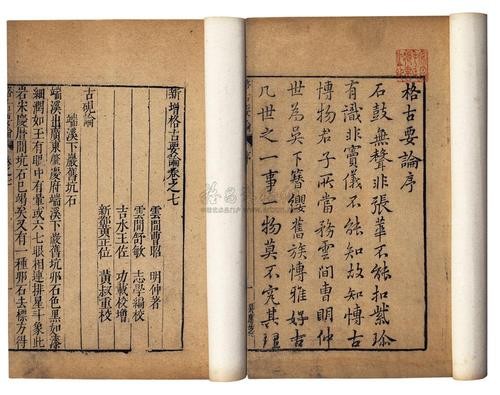 格古要論序
石鼓無聲非張華不能扣紫珍
有識非寶儀不能知故知博古
博物君子所當務雲間曹明仲
世為吳下簪纓舊族博雅好古
凡世之一事一物莫不究其理
新增格古要論卷之七
雲間曹昭 明仲著
雲間舒敏 志學編校
吉水王佐 功載校增
新都黃正位 黃叔重校
古硯論
端溪下巖舊坑石
端溪出廣東肇慶府端溪下巖舊坑卵石色黑如漆
細潤如玉有眼中有暈或六七眼相連排星斗象此
岩宋慶曆間坑石已竭矣又有一種卵石去膘方得